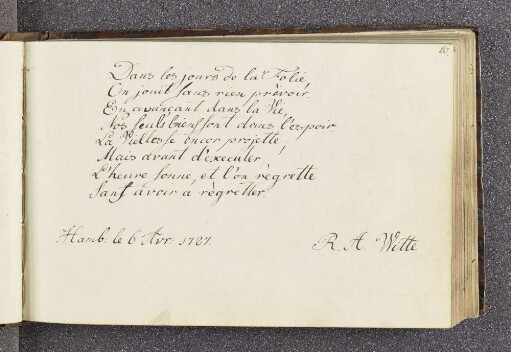 Dans les jours de la Folie
On jouit sans rien prévoir.
En avançant dans la Vie
Nos seuls biens sont dans l'espoir.
La Viellesse encor projette
Mais avant d'executer
L'heure sonne, et l'on règrette
Sans avoir a règretter.
Hamb. le 6 Avr. 1787.
R. A. Witte